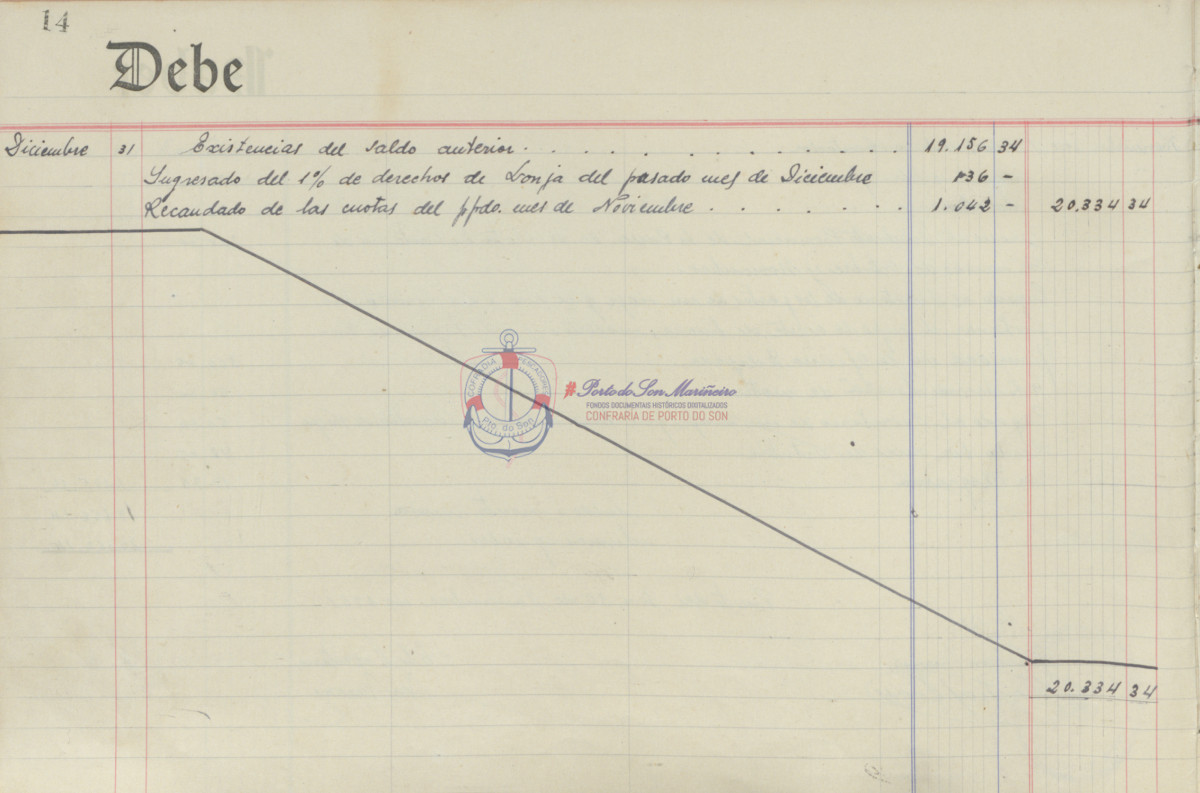 14
Debe
Diciembre 31 Existencias del saldo anterior . . . . . . . . . . . 19.156 34
Ingresado del 1% de derechos de Lonja del pasado mes de Diciembre 136 -
Recaudado de las cuotas del ppdo. mes de Noviembre . . . . . . . 1.042 - 20.334 34
COFRADIA PESCADORES
Pto. do Son
#Porto do Son Mariñeiro
FONDOS DOCUMENTAIS HISTÓRICOS DIXITALIZADOS
CONFRARÍA DE PORTO DO SON
20.334 34